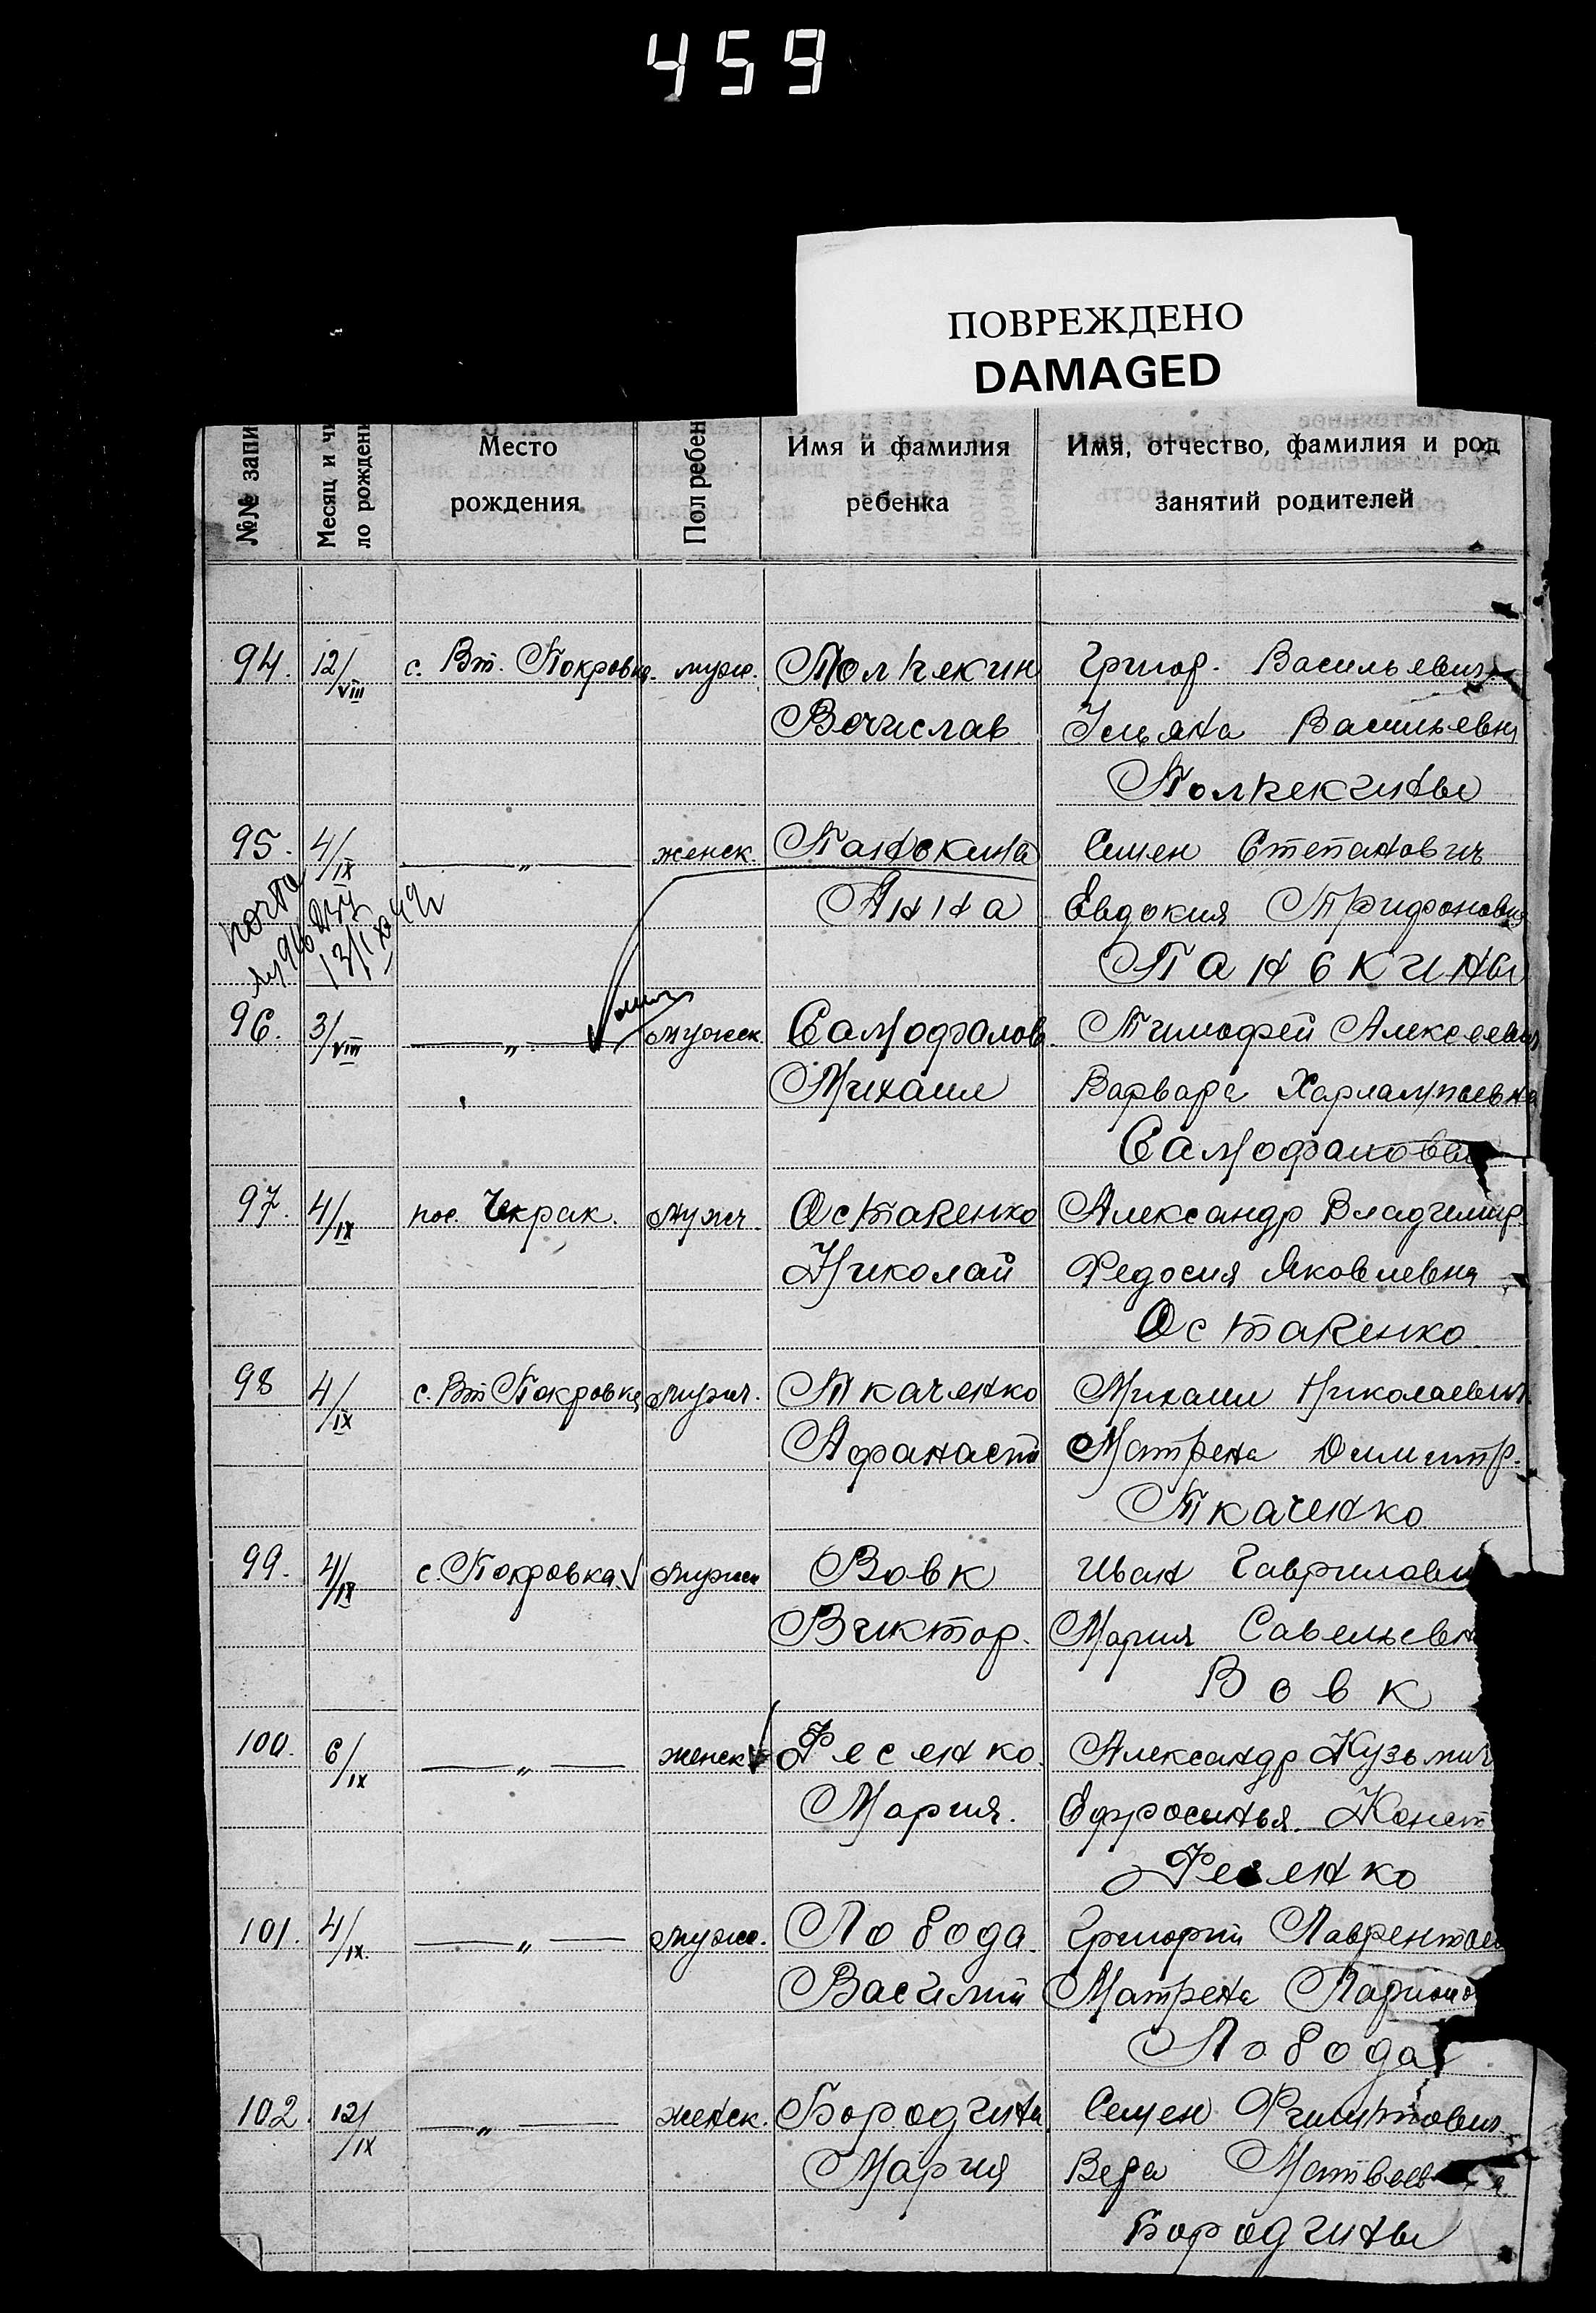 459
ПОВРЕЖДЕНО
DAMAGED
№№ запи
Месяц и чи
ло рожден
Место
рождения
Пол ребен
Имя и фамилия
ребенка
Имя, отчество, фамилия и род
занятий родителей
94. 12/VIII с. Вт. Покровка. муж. Григор. Васильевич
Вечислав Васильевна
95. 4/IX — „ — женск. Панькина Семен Степанович
Анна Евдокия Трифоновна
Панькины
96. 3/VIII — „ — мужск. Самофалов Тимофей Алексеевич
Михаил Варвара Харлампиевна
Самофаловы
97. 4/IX пос. Чекрак. мужч Остапенко Александр Владимир.
Николай Федосия Яковлевна
Остапенко
98 4/IX с. Вт Покровка мужч. Ткаченко Михаил Николаевич
Афанасий Матрена Димитр.
Ткаченко
99. 4/IX с. Покровка мужч Вовк Иван Гаврилови
Виктор. Мария Савельевн
Вовк
100. 6/IX — „ — женск Фесенко. Александр Кузьмич
Мария. Ефросинья. Конст
Фесенко
101. 4/IX. — „ — муж. Лобода. Григорий Лаврентье
Василий Матрена Ларионо
Лобода
102. 12/IX — „ — женск. Бородина Семен Филиппович
Мария Вера Матвеев а
Бородины